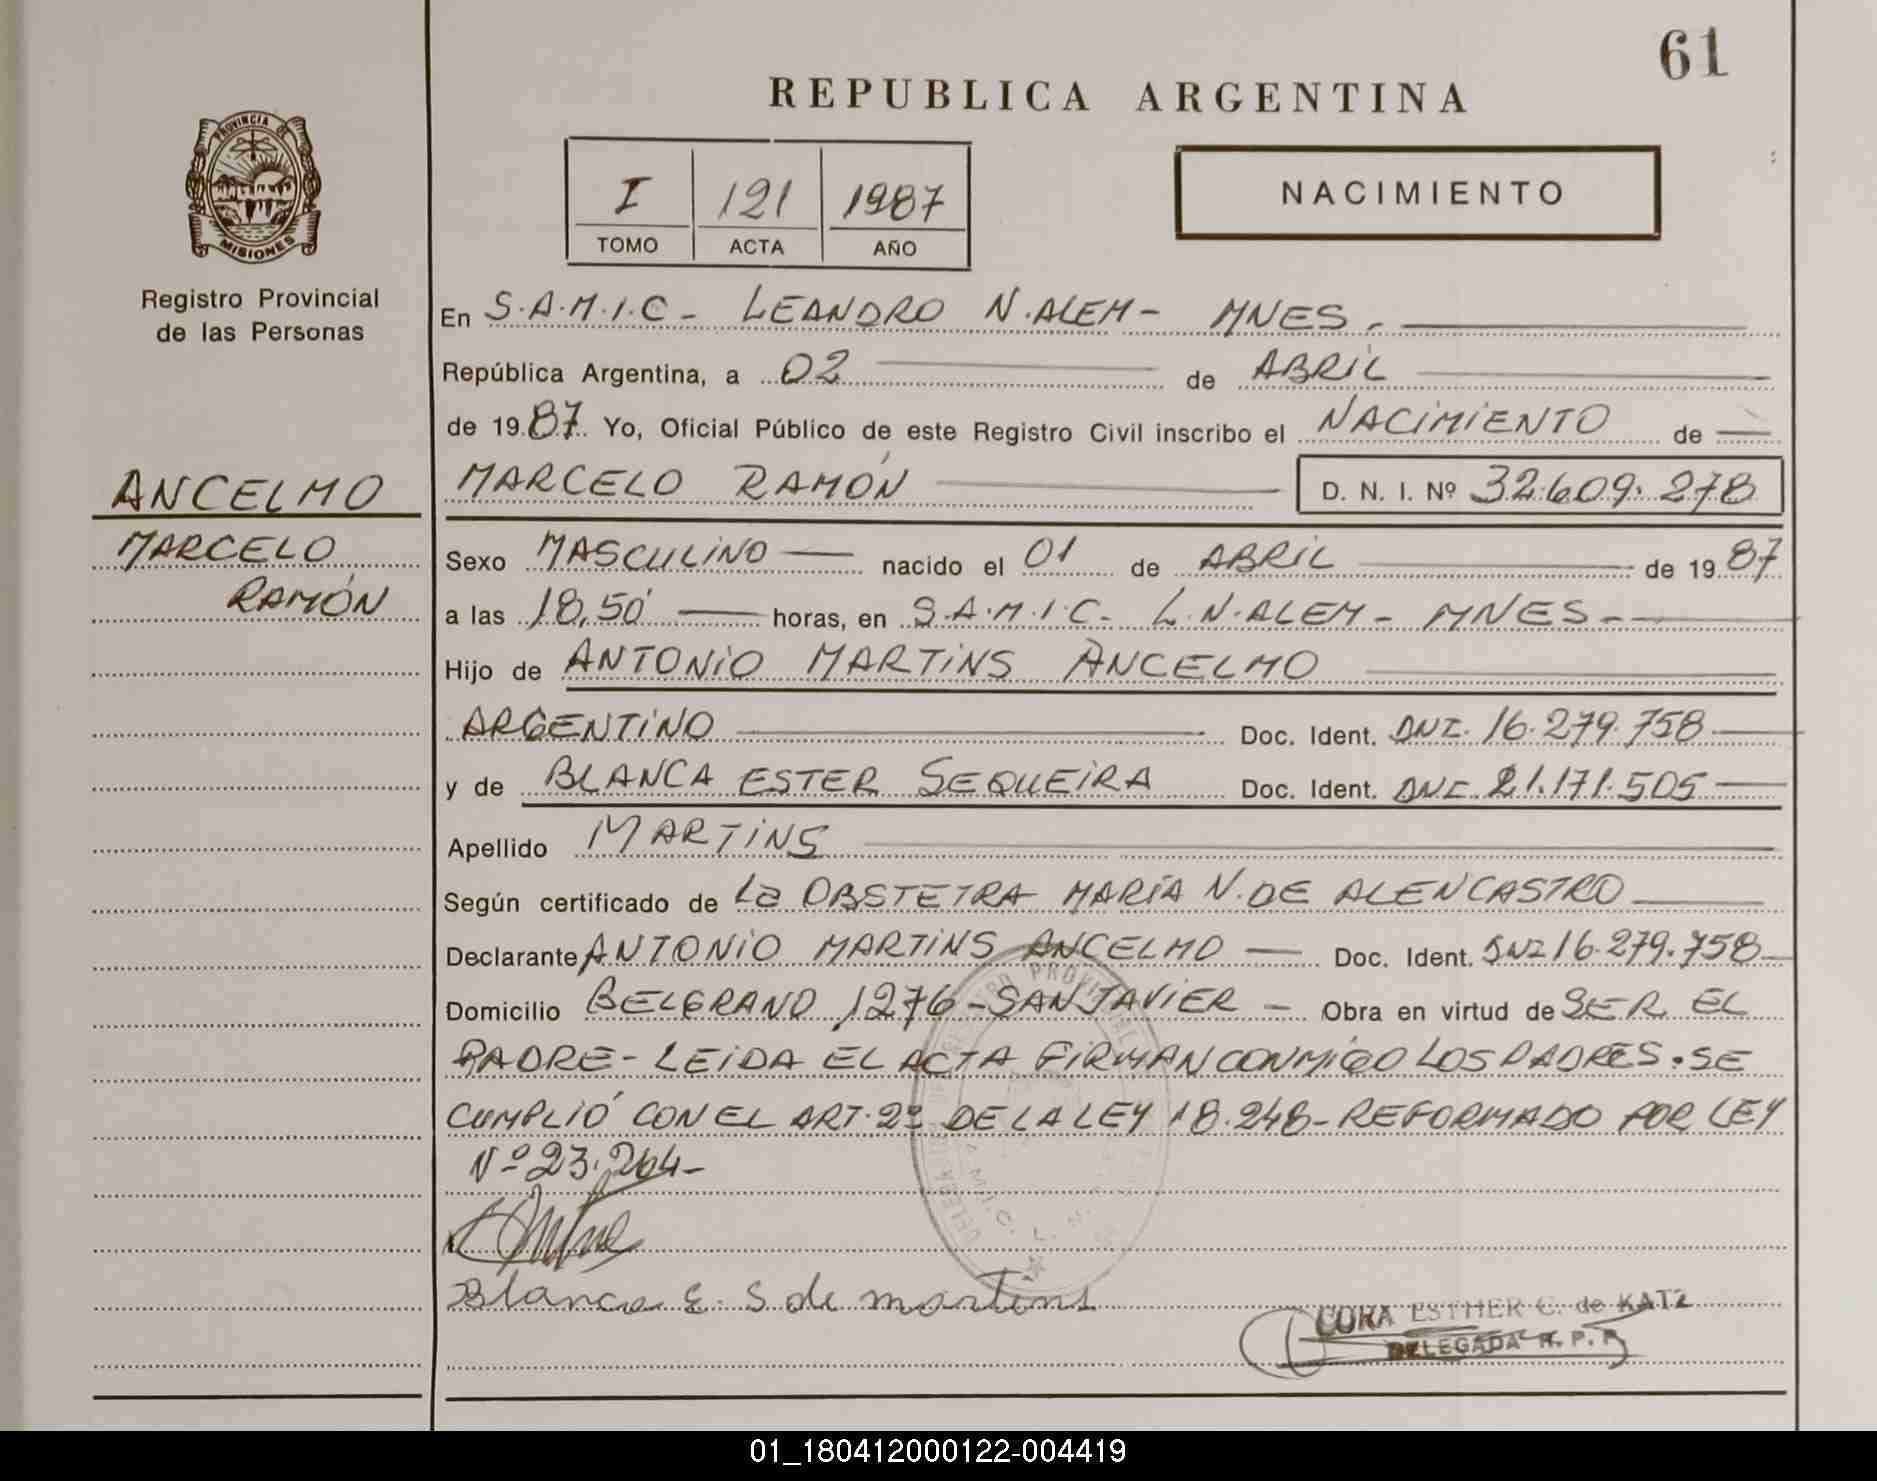 61
REPUBLICA ARGENTINA
PROVINCIA DE
MISIONES
Registro Provincial
de las Personas
I 121 1987
TOMO ACTA AÑO
NACIMIENTO
En S.A.M.I.C - LEANDRO N. ALEM - MNES.
República Argentina, a 02 de ABRIL
de 1987. Yo, Oficial Público de este Registro Civil inscribo el NACIMIENTO de
ANCELMO
MARCELO
RAMÓN
MARCELO RAMÓN D. N. I. Nº 32.609.278
Sexo MASCULINO nacido el 01 de ABRIL de 1987
a las 18,50 horas, en S.A.M.I.C. L.N.ALEM - MNES -
Hijo de ANTONIO MARTINS ANCELMO
ARGENTINO Doc. Ident. DNI. 16.279.758
y de BLANCA ESTER SEQUEIRA Doc. Ident. DNI 21.171.505
Apellido MARTINS
Según certificado de La OBSTETRA MARÍA N. DE ALENCASTRO
Declarante ANTONIO MARTINS ANCELMO Doc. Ident. DNI 16.279.758
Domicilio BELGRANO 1276 - SAN JAVIER - Obra en virtud de SER EL
PADRE - LEIDA EL ACTA FIRMAN CONMIGO LOS PADRES. SE
CUMPLIÓ CON EL ART. 2º DE LA LEY 18.248 - REFORMADO POR LEY
Nº 23.264 -
Blanca E. S de martins
CORA ESTHER C. de KATZ
DELEGADA R. P. P.
01_180412000122-004419